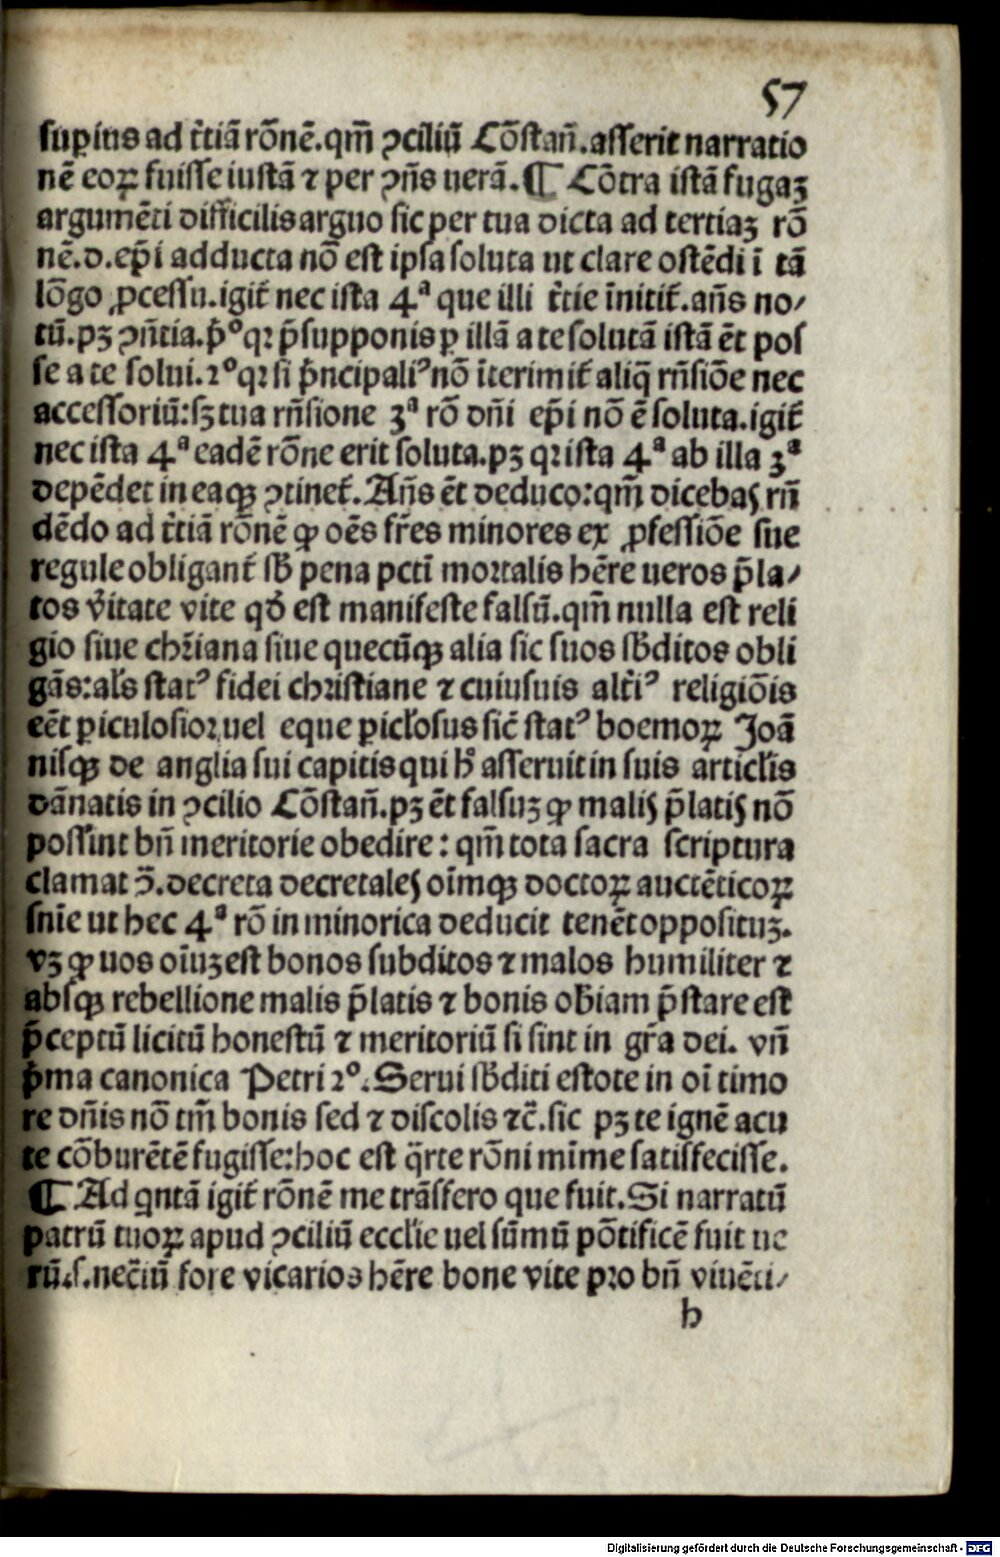 57
suꝑius ad t̃tiā rōnē.qm̃ ꝯciliū Cōstan̄.asserit narratio
nē eoꝝ fuisse iustā ⁊ per ꝯn̄s uerā.¶ Cōtra istā fugaꝫ
argumēti difficilis arguo sic per tua dicta ad tertiaꝫ rō
nē.d.ep̄i adducta nō est ipsa soluta ut clare ostēdi ī tā
lōgo ꝓcessu.igit̃ nec ista 4ª que illi t̃tie īnitit̃.an̄s no⸗
tū.pꝫ ꝯn̄tia.p̄º qꝛ p̄supponis ꝑ illā a te solutā istā ēt pos
se a te solui.2º qꝛ si p̄ncipaliꝰ nō īterimit̃ aliq̄ rn̄siōe nec
accessoriū:sꝫ tua rn̄sione 3ª rō dn̄i ep̄i nō ē soluta.igit̃
nec ista 4ª eadē rōne erit soluta.pꝫ qꝛ ista 4ª ab illa 3ª
depēdet in eaqꝫ ꝯtinet̃.An̄s ēt deduco:qm̃ dicebas rn̄
dēdo ad t̃tiā rōnē ꝙ oēs fr̄es minores ex ꝓfessiōe sue
regule obligant̃ sb̄ pena pcti mortalis hēre ueros p̄la⸗
tos v̄itate vite qđ est manifeste falsū.qm̃ nulla est reli
gio siue chr̄iana siue quecūqꝫ alia sic suos sb̄ditos obli
gās:al's statꝰ fidei christiane ⁊ cuiusuis alt̃iꝰ religiōis
eēt ꝑiculosior uel eque ꝑicl'osus sic̄ statꝰ boemoꝝ Joā
nisqꝫ de anglia sui capitis qui h̄ asseruit in suis articl'is
dānatis in ꝯcilio Cōstan̄.pꝫ ēt falsuꝫ ꝙ malis p̄latis nō
possint bn̄ meritorie obedire: qm̃ tota sacra scriptura
clamat ꝯ̄.decreta decretales oīmqꝫ doctoꝝ auctēticoꝝ
snīe ut hec 4ª rō in minorica deducit tenēt opposituꝫ.
vꝫ ꝙ uos oīuꝫ est bonos subditos ⁊ malos humiliter ⁊
absqꝫ rebellione malis p̄latis ⁊ bonis ob̄iam p̄stare est
p̄ceptū licitū honestū ⁊ meritoriū si sint in gr̃a dei. vn̄
p̄ma canonica Petri 2º.Serui sb̄diti estote in oī timo
re dn̄is nō tm̃ bonis sed ⁊ discolis ⁊c̄.sic pꝫ te ignē acu
te cōburētē fugisse:hoc est q̄rte rōni mīme satisfecisse.
¶ Ad qntā igit̃ rōnē me trāsfero que fuit.Si narratū
patrū tuoꝝ apud ꝯciliū eccl'ie uel sūmū pōtificē fuit ue
rū.s.nec̄iū fore vicarios hēre bone vite pro bn̄ viuēti⸗
h
Digitalisierung gefördert durch die Deutsche Forschungsgemeinschaft - DFG